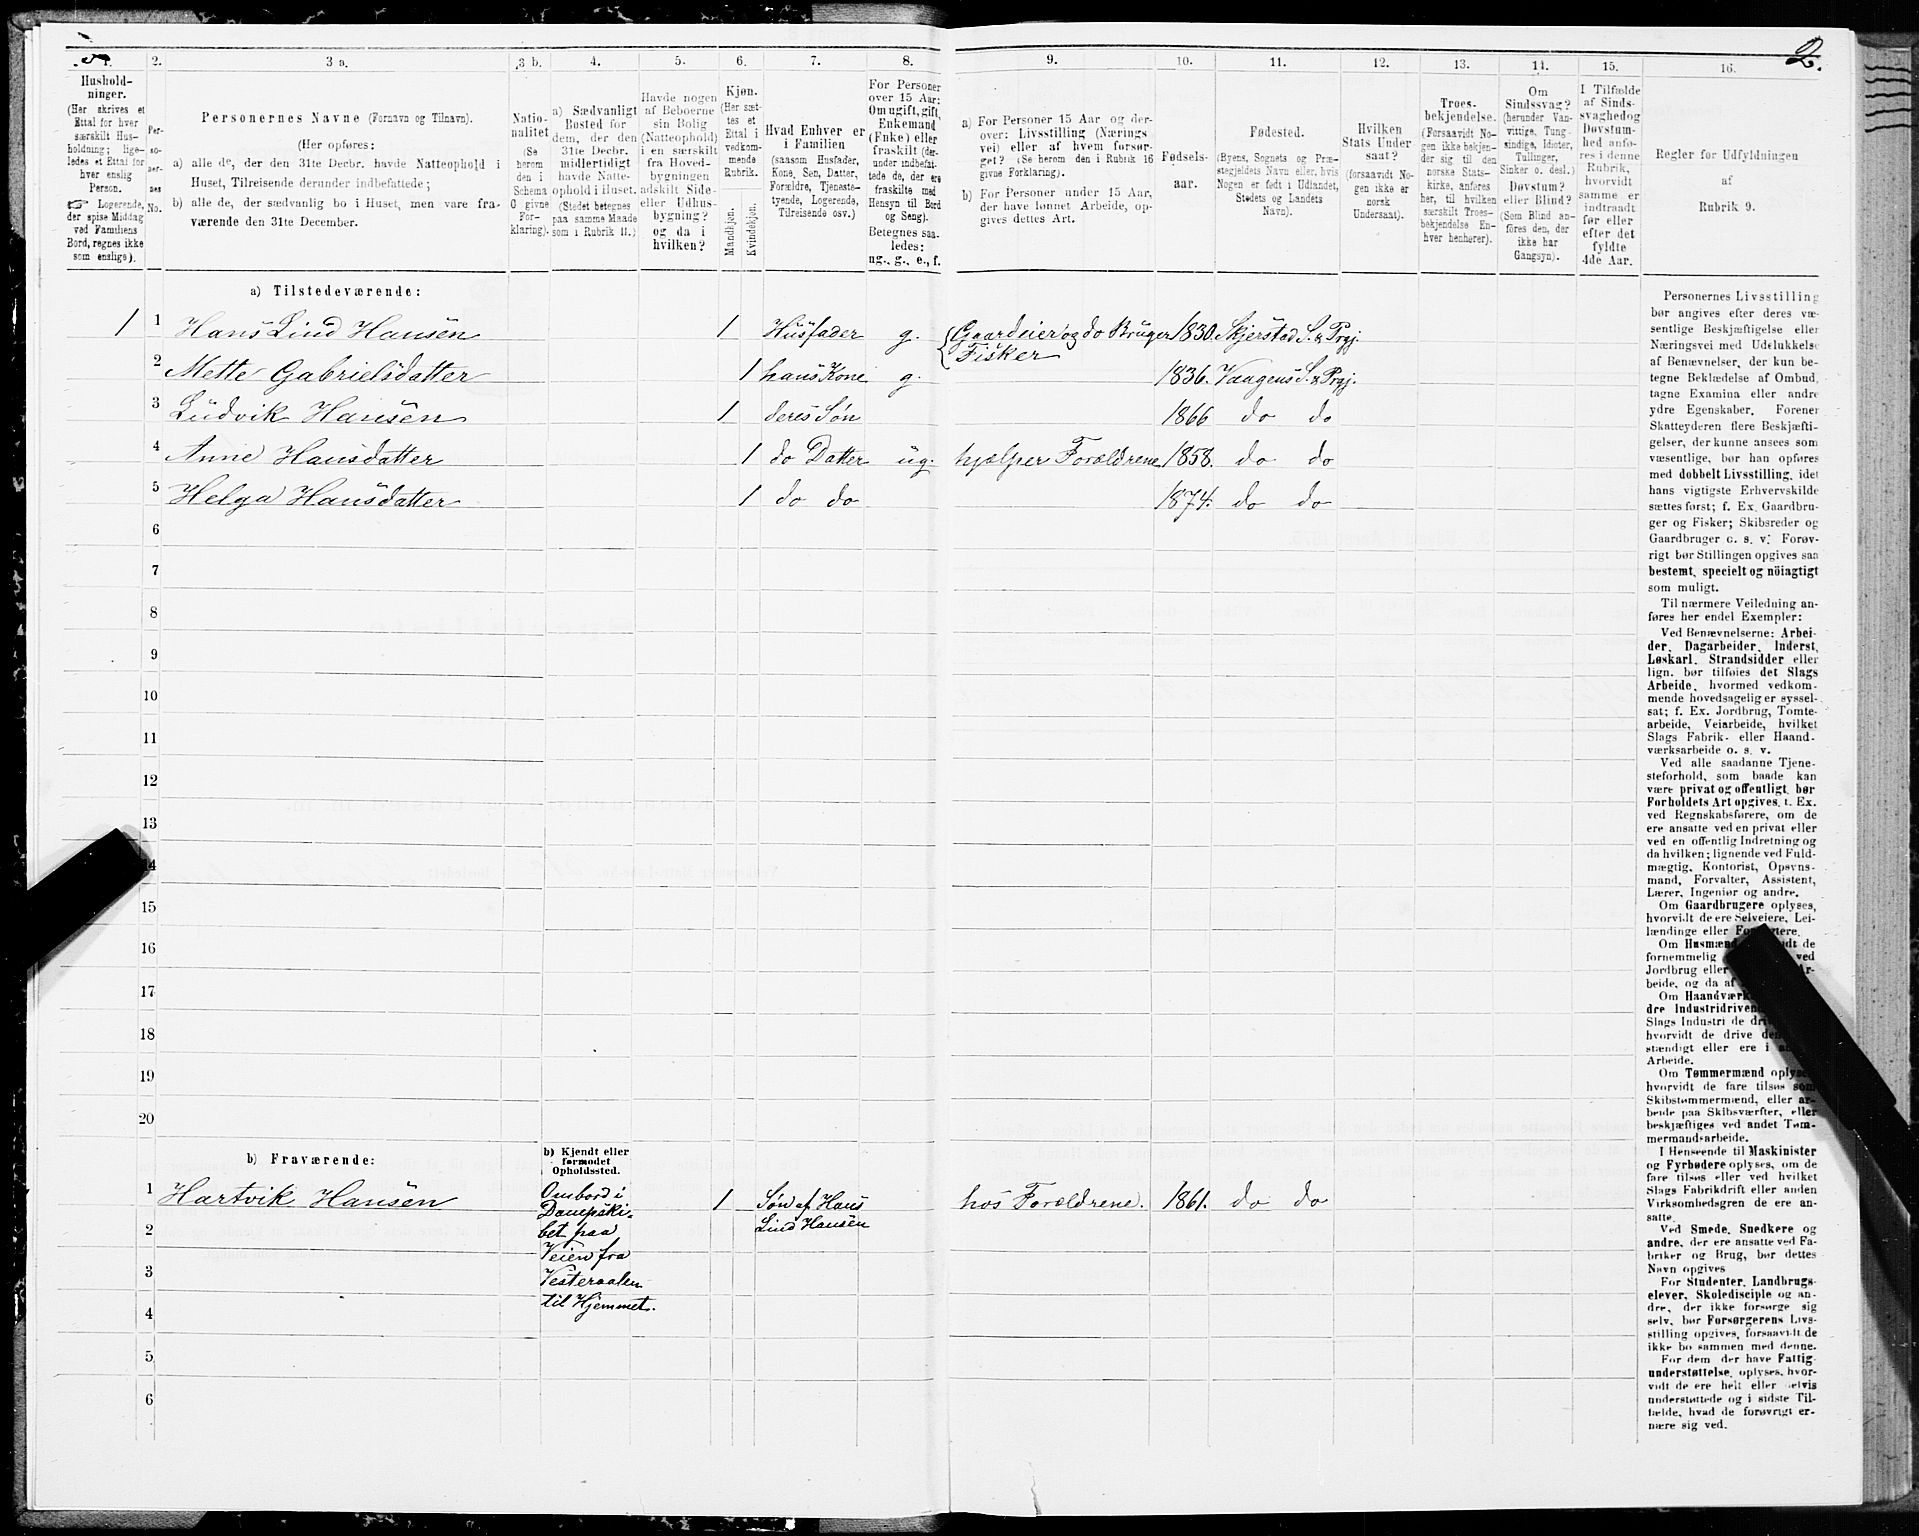 2.
1.
2.
3 a.
3 b.
4.
5.
6.
7.
8.
9.
10.
11.
12.
13.
14.
15.
16.
Hushold-
ninger.
(Her skrives et
Ettal for hver
særskilt Hus-
holdning; lige-
ledes et Ettal for
hver enslig
Person.
☞ Logerende,
der spise Middag
ved Familiens
Bord, regnes ikke
som enslige).
Per-
so-
ner-
nes
No.
Personernes Navne (Fornavn og Tilnavn).
(Her opføres:
a) alle de, der den 31te Decbr. havde Natteophold i
Huset, Tilreisende derunder indbefattede;
b) alle de, der sædvanlig bo i Huset, men vare fra-
værende den 31te December.
Natio-
nalitet
(Se
herom
den i
Schema
G givne
For-
klaring).
a) Sædvanligt
Bosted for
dem, der den
31te Decbr.
midlertidigt
havde Natte-
ophold i Huset.
(Stedet betegnes
paa samme Maade
som i Rubrik 11.)
Havde nogen
af Beboerne
sin Bolig
(Natteophold)
i en særskilt
fra Hoved-
bygningen
adskilt Side-
eller Udhus-
bygning?
og da i
hvilken?
Kjøn.
(Her sæt-
tes et
Ettal i
vedkom-
mende
Rubrik.
Mandkjøn.
Kvindekjøn.
Hvad Enhver er
i Familien
(saasom Husfader,
Kone, Søn, Datter,
Forældre, Tjeneste-
tyende, Logerende,
Tilreisende osv.)
For Personer
over 15 Aar:
Om ugift, gift,
Enkemand
(Enke) eller
fraskilt (der-
under indbefat-
tede de, der ere
fraskilte med
Hensyn til Bord
og Seng).
Betegnes saa-
ledes:
ug., g., e., f.
a) For Personer 15 Aar og der-
over: Livsstilling (Nærings-
vei) eller af hvem forsør-
get? (Se herom den i Rubrik 16
givne Forklaring).
b) For Personer under 15 Aar,
der have lønnet Arbeide, op-
gives dettes Art.
Fødsels-
aar.
Fødested.
(Byens, Sognets og Præ-
stegjeldets Navn eller, hvis
Nogen er født i Udlandet,
Stedets og Landets
Navn).
Hvilken
Stats Under
saat?
(forsaavidt No-
gen ikke er
norsk
Undersaat).
Troes-
bekjendelse.
(Forsaavidt No-
gen ikke bekjen-
der sig til den
norske Stats-
kirke, anføres
her, til hvilken
særskilt Troes-
bekjendelse En-
hver henhører).
Om
Sindssvag?
(herunder Van-
vittige, Tung-
sindige, Idioter,
Tullinger,
Sinker o. desl.)
Døvstum?
eller Blind?
(Som Blind an-
føres den, der
ikke har
Gangsyn).
I Tilfælde
af Sinds-
svaghed og
Døvstum-
hed anfø-
res i denne
Rubrik,
hvorvidt
samme er
indtraadt
før eller
efter det
fyldte
4de Aar.
Regler for Udfyldningen
af
Rubrik 9.
a) Tilstedeværende:
1 1 Hans Lind Hansen 1 Husfader g. Gaardeier og do Bruger 1830. Skjerstad S. & Prgj.
Fisker
2 Mette Gabrielsdatter 1 hans Kone g. 1836. Vaagens S. & Prgj.
3 Ludvik Hansen 1 deres Søn 1866 do do
4 Anne Hansdatter 1 do Datter ug. hjælper Forældrene 1858. do do
5 Helga Hansdatter 1 do do 1874. do do
6
7
8
9
10
11
12
13
14
15
16
17
18
19
20
b) Fraværende:
b) Kjendt eller
formodet
Opholdssted.
1 Hartvik Hansen Ombord i 1 Søn af Hans hos Forældrene. 1861. do do
Dampski-
2 bet paa Lind Hansen
Veien fra
3 Vesteraalen
4 til Hjemmet.
5
6
Personernes Livsstilling
bør angives efter deres væ-
sentlige Beskjæftigelse eller
Næringsvei med Udelukkelse
af Benævnelser, der kun be-
tegne Beklædelse af Ombud,
tagne Examina eller andre
ydre Egenskaber. Forener
Skatteyderen flere Beskjæfti-
gelser, der kunne ansees som
væsentlige, bør han opføres
med dobbelt Livsstilling, idet
hans vigtigste Erhvervskilde
sættes først; f. Ex. Gaardbru-
ger og Fisker; Skibsreder og
Gaardbruger o. s. v. Forøv-
rigt bør Stillingen opgives saa
bestemt, specielt og nöiagtigt
som muligt.
Til nærmere Veiledning an-
føres her endel Exempler:
Ved Benævnelserne: Arbei-
der, Dagarbeider, Inderst,
Løskarl, Strandsidder eller
lign. bør tilføies det Slags
Arbeide, hvormed vedkom-
mende hovedsagelig er syssel-
sat; f. Ex. Jordbrug, Tomte-
arbeide, Veiarbeide, hvilket
Slags Fabrik- eller Haand-
værksarbeide o. s. v.
Ved alle saadanne Tjene-
steforhold, som baade kan
være privat og offentligt, bør
Forholdets Art opgives, t. Ex.
ved Regnskabsførere, om de
ere ansatte ved en privat eller
ved en offentlig Indretning og
da hvilken; lignende ved Fuld-
mægtig, Kontorist, Opsyns-
mand, Forvalter, Assistent,
Lærer, Ingeniør og andre.
Om Gaardbrugere oplyses,
hvorvidt de ere Selveiere, Lei-
lændinge eller
Om Husmænd de
fornemmelig ved
Jordbrug eller
beide, og da af
Om
dre
Slags Industri de
hvorvidt de drive
stændigt eller ere i
Arbeide.
Om Tømmermænd oplyses,
hvorvidt de fare tilsøs som
Skibstømmermænd, eller ar-
beide paa Skibsværfter, eller
beskjæftiges ved andet Tøm-
mermandsarbeide.
I Henseende til Maskinister
og Fyrbødere oplyses, om de
fare tilsøs eller ved hvilket
Slags Fabrikdrift eller anden
Virksomhedsgren de ere an-
satte.
Ved Smede, Snedkere og
andre, der ere ansatte ved Fa-
briker og Brug, bør dettes
Navn opgives
For Studenter, Landbrugs-
elever, Skoledisciple og an-
dre, der ikke forsørge sig
selv, bør Forsørgerens Livs-
stilling opgives, forsaavidt de
ikke bo sammen med denne.
For dem der have Fattig-
understøttelse, oplyses, hvor-
vidt de ere helt eller delvis
understøttede og i sidste Til-
fælde, hvad de forøvrigt er-
nære sig ved.